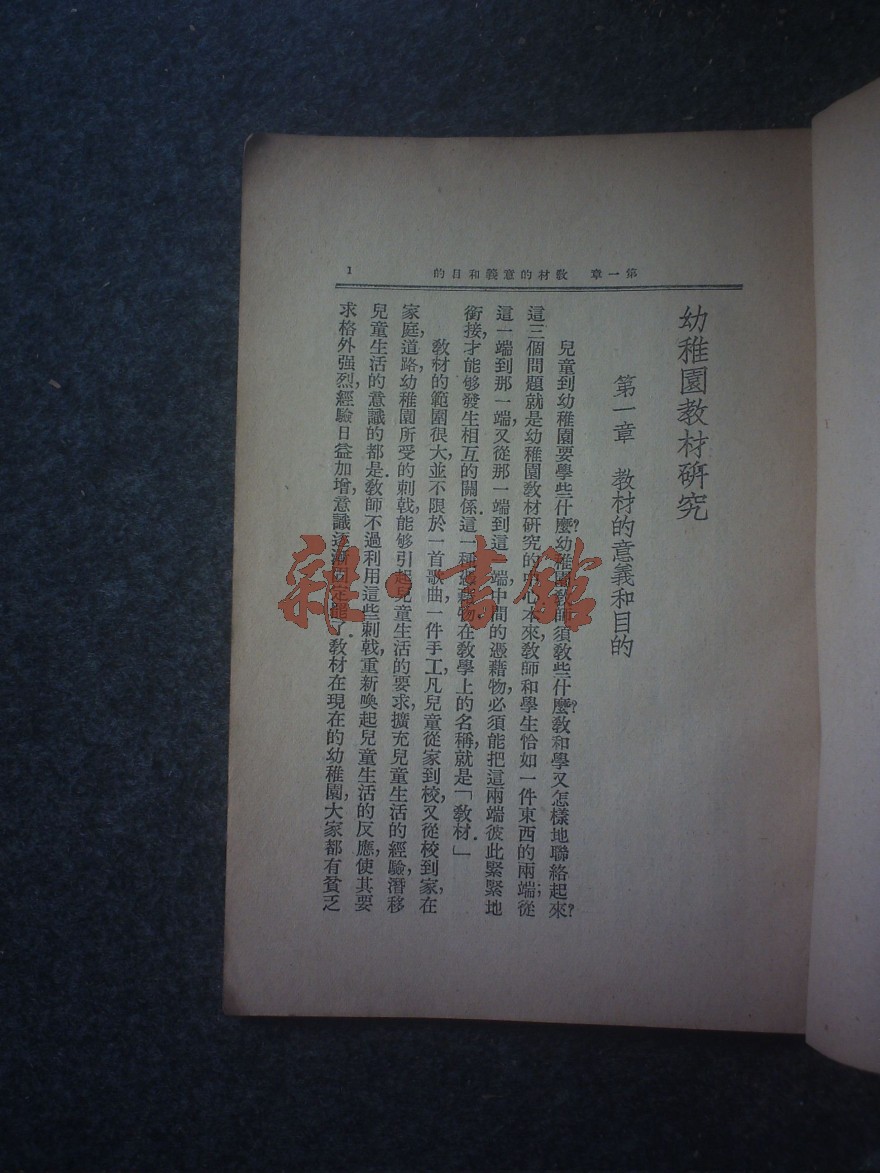 第一章 教材的意義和目的 1
幼稚園教材硏究
第一章 教材的意義和目的
兒童到幼稚園要學些什麼?幼稚園教師須教些什麼?教和學又怎樣地聯絡起來?
這三個問題就是幼稚園教材硏究的中心本來,教師和學生恰如一件東西的兩端;從
這一端到那一端,又從那一端到這一端,中間的憑藉物,必須能把這兩端彼此緊緊地
銜接,才能够發生相互的關係.這一種憑藉物,在教學上的名稱,就是「教材.」
教材的範圍很大,並不限於一首歌曲,一件手工,凡兒童從家到校,又從校到家,在
家庭,道路,幼稚園所受的刺戟,能够引起兒童生活的要求,擴充兒童生活的經驗,潛移
兒童生活的意識的都是.教師不過利用這些刺戟,重新喚起兒童生活的反應,使其要
求格外强烈,經驗日益加增,意識逐漸固定罷了.教材在現在的幼稚園,大家都有貧乏
雜·書館